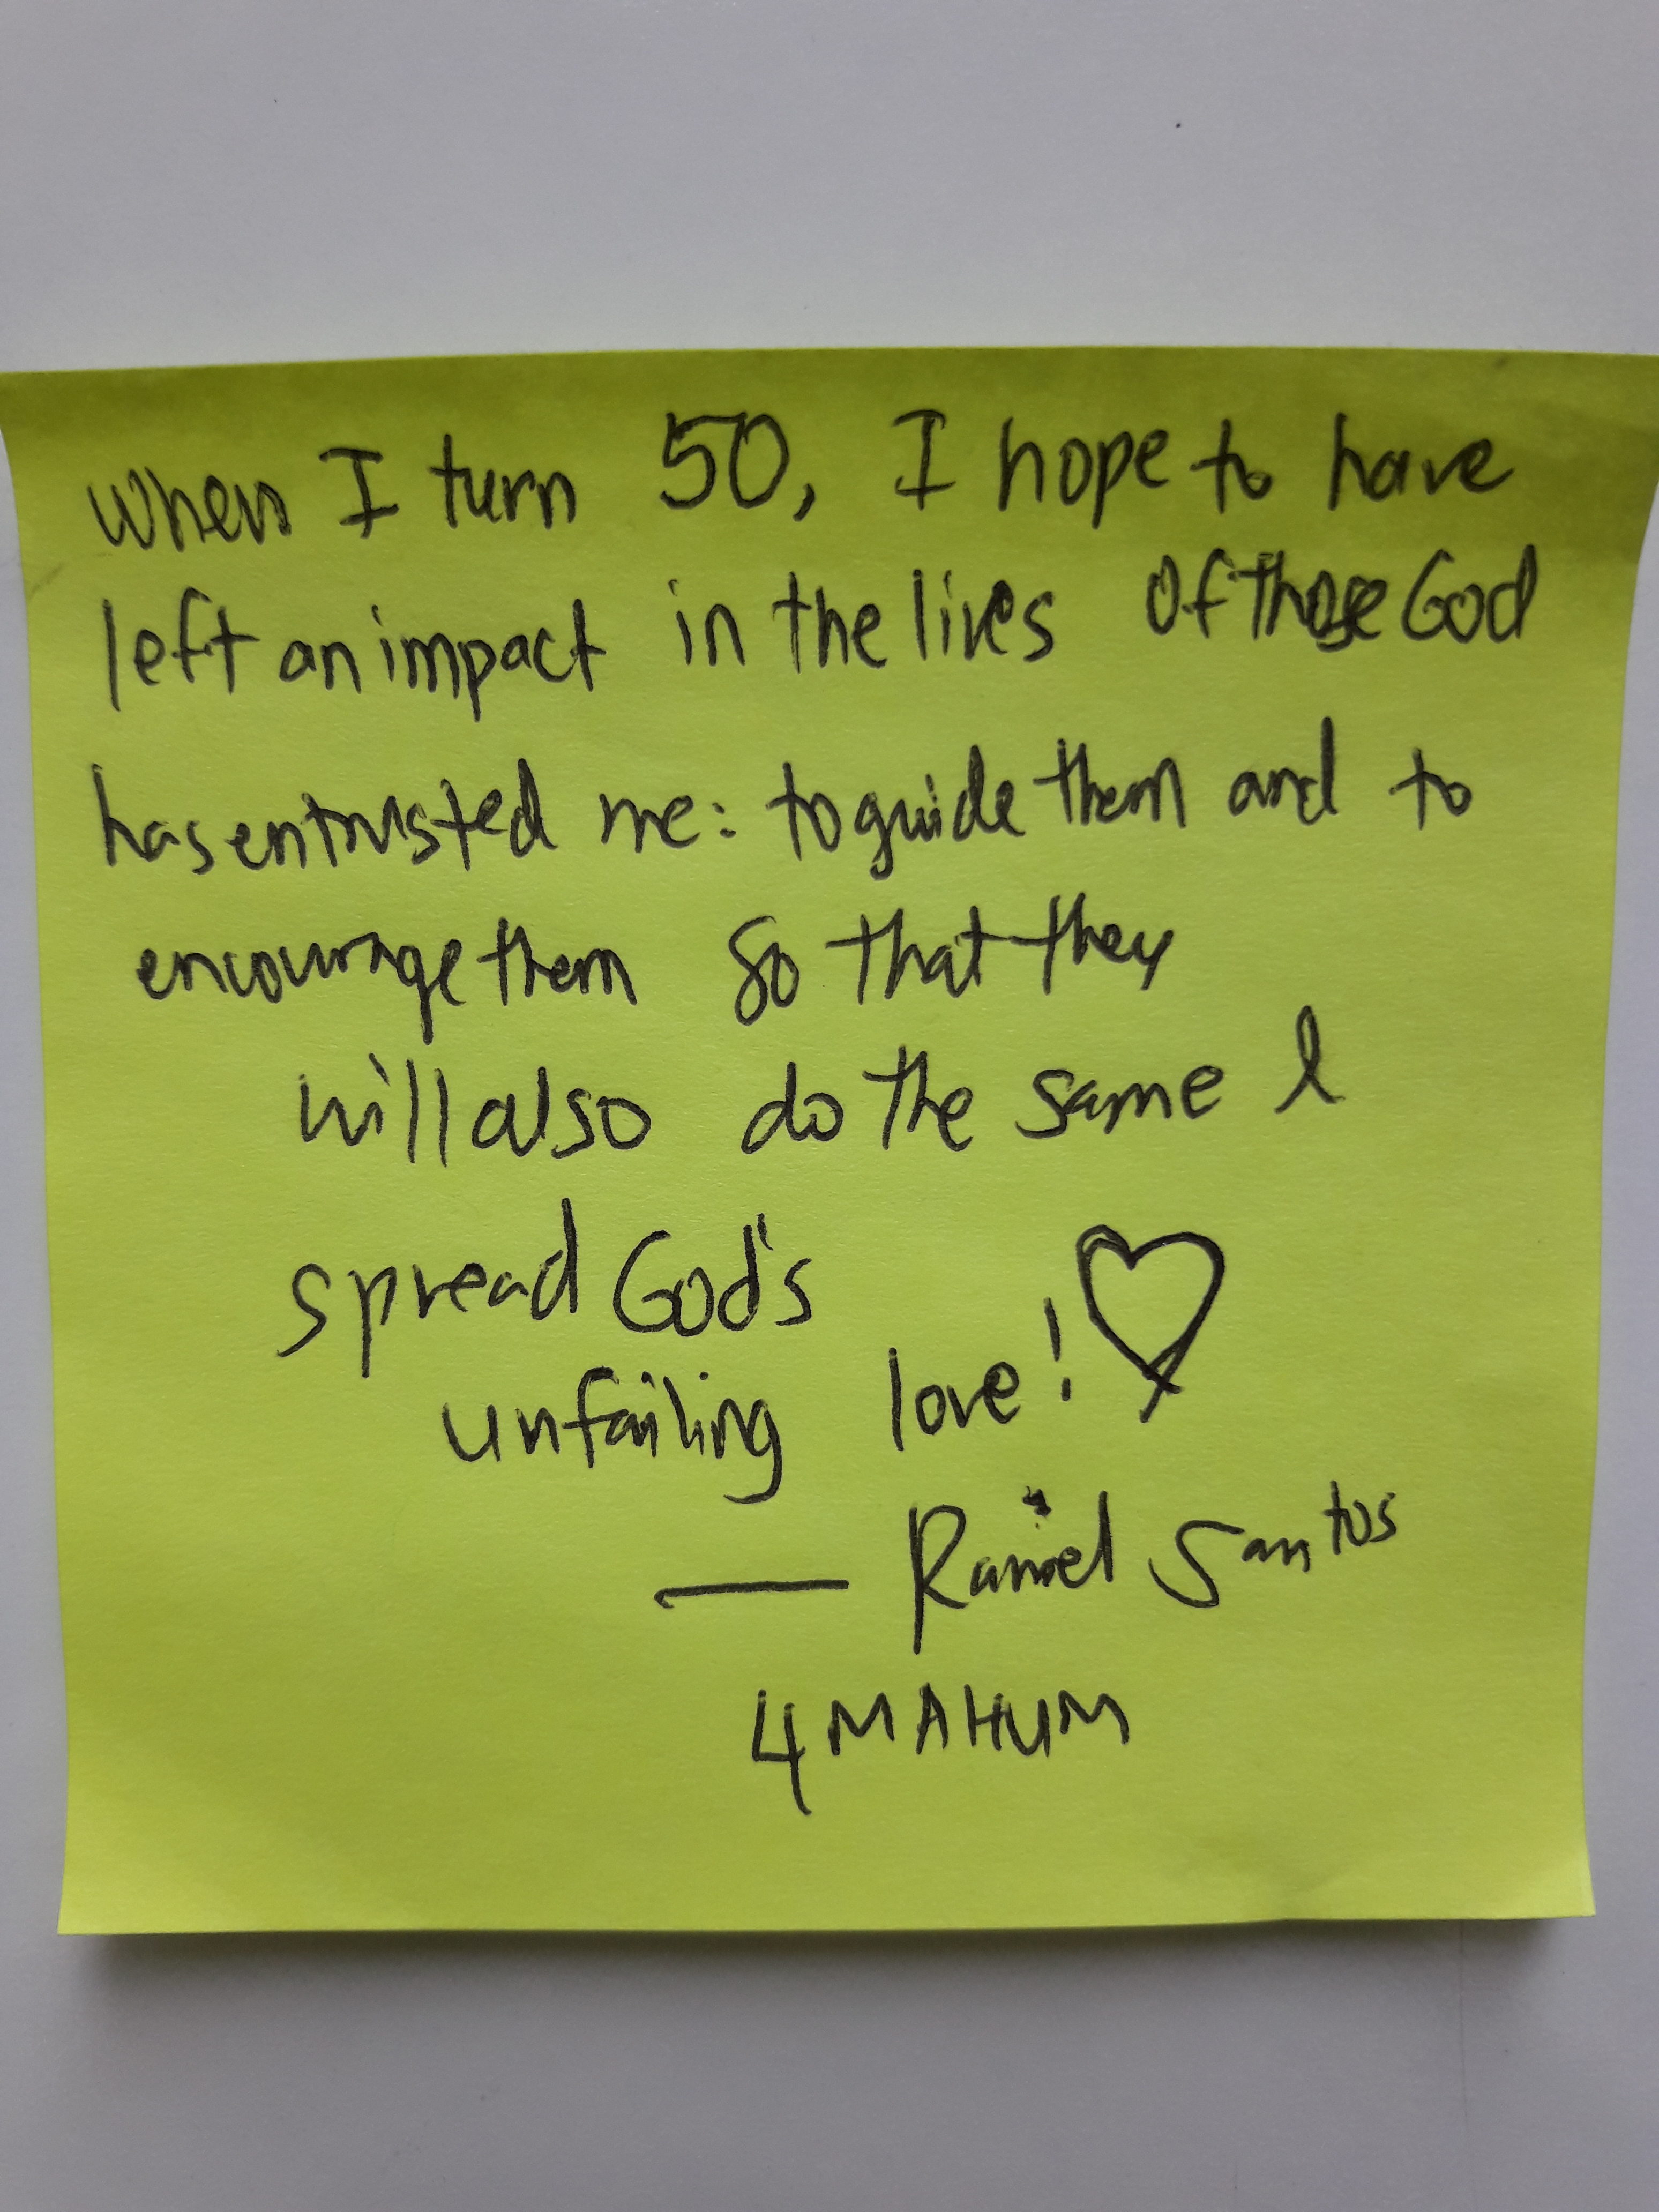 when I turn 50, I hope to have
left an impact in the lives of those God
has entrusted me: to guide them and to
encourage them so that they
will also do the same &
spread God's
unfailing love! ♡
— Raniel Santos
4 MAHUM